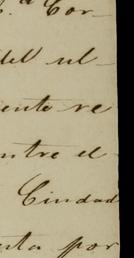 ª Cor-
del ul-
iente re
entre el
Ciudad
enta por